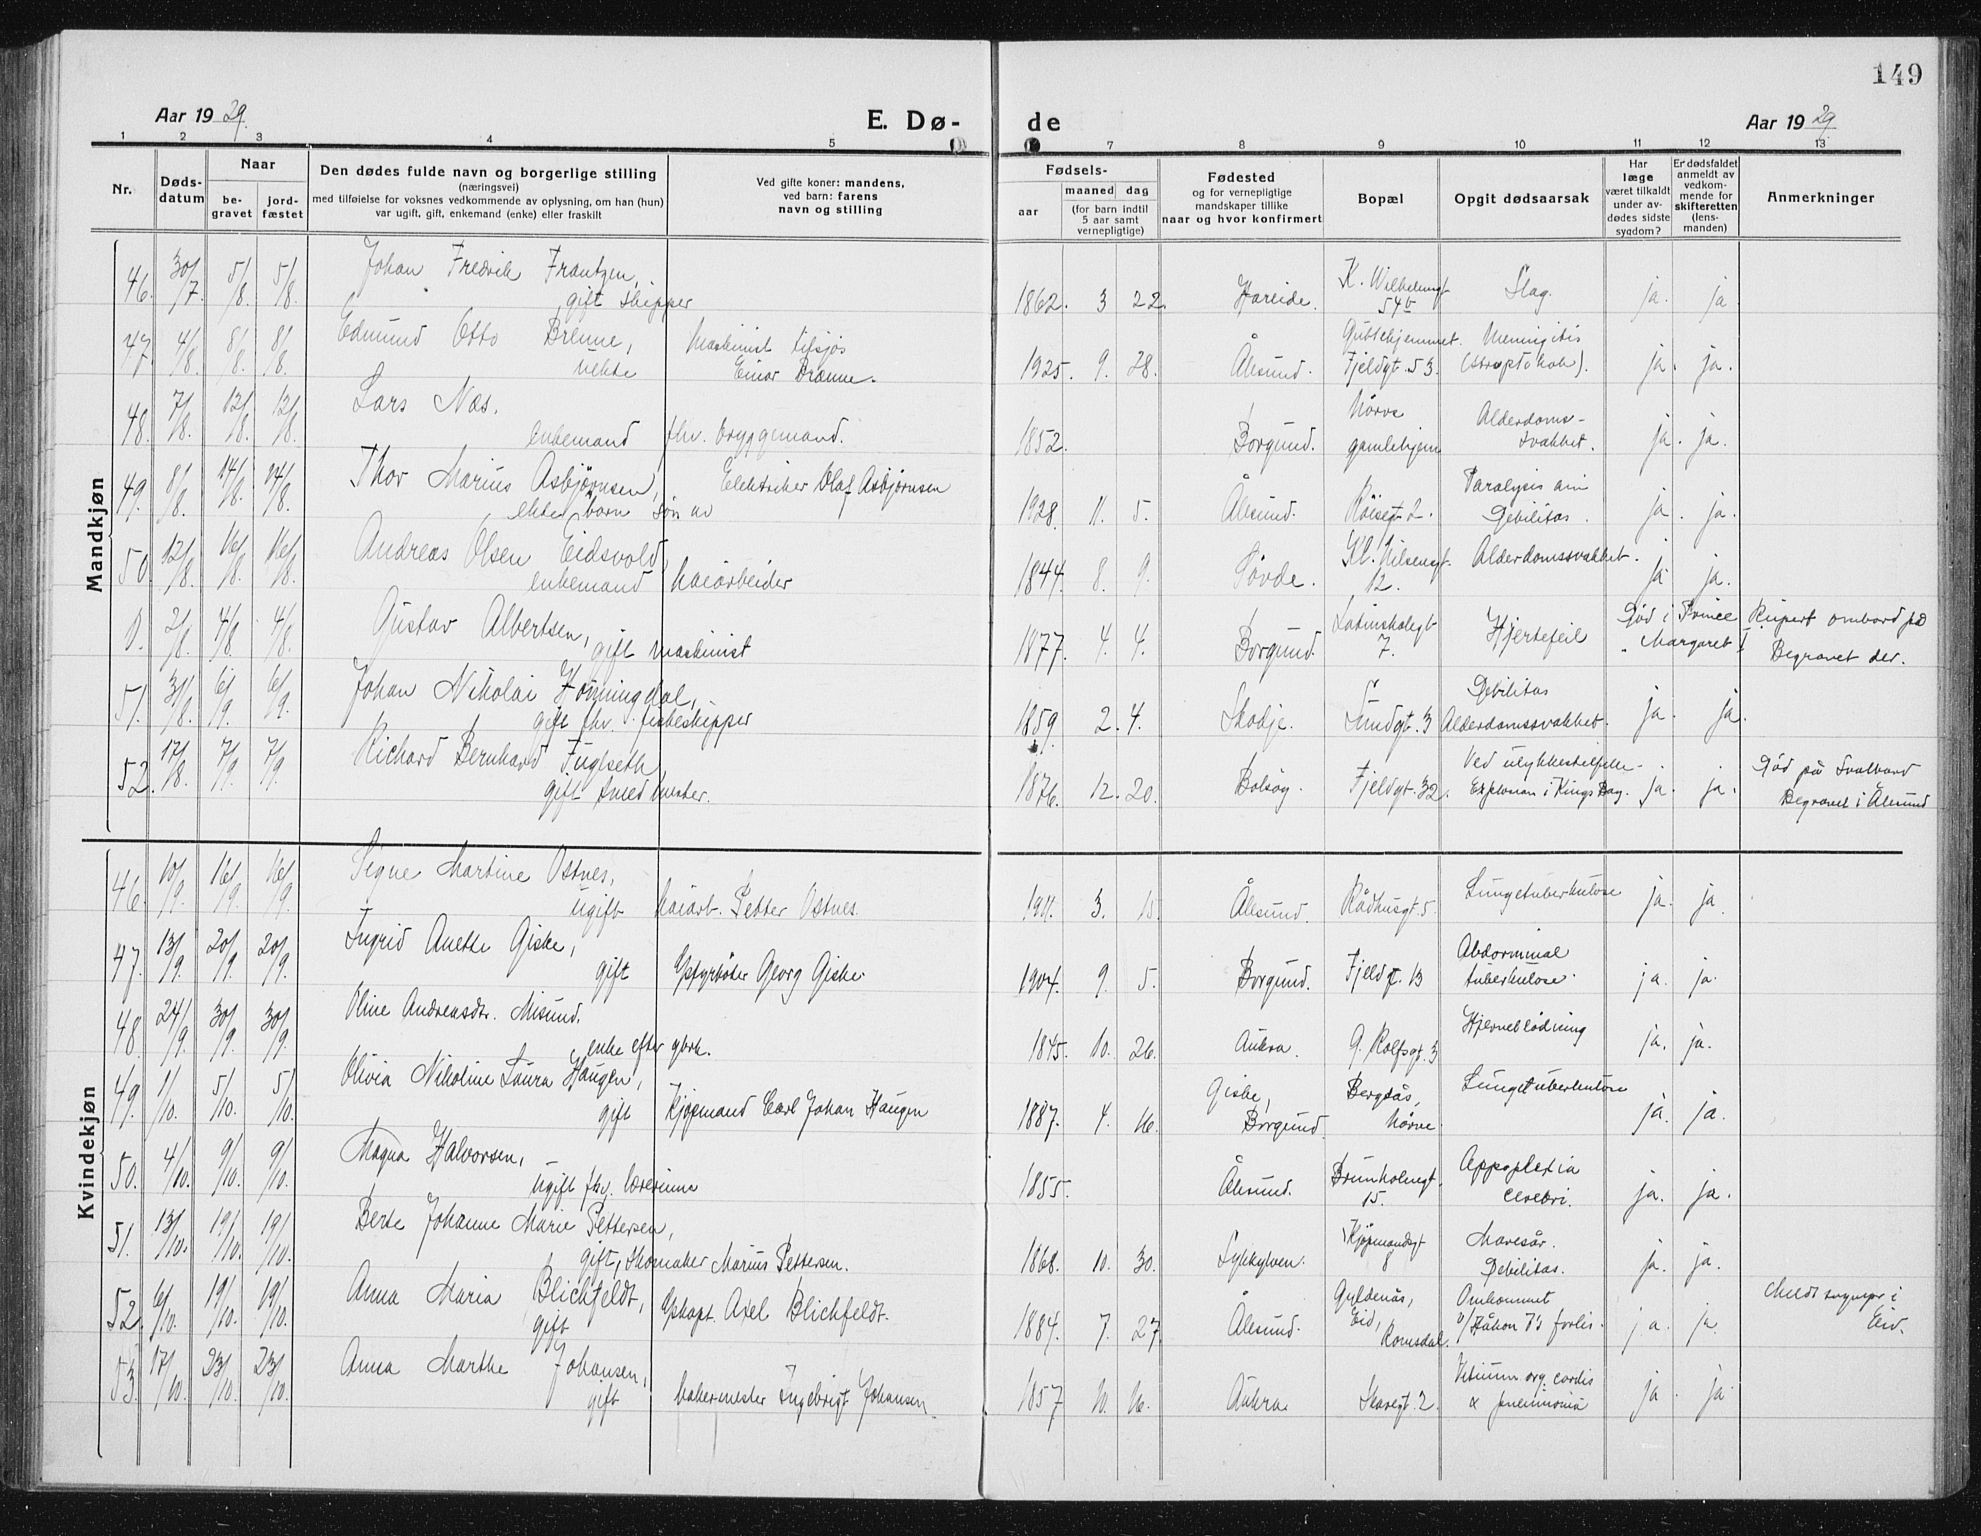 149
Aar 1929.
E. Dø-
de
Aar 1929
1 2 3 4 5 7 8 9 10 11 12 13
Nr.
Døds-
datum
Naar
be-
gravet
jord-
fæstet
Den dødes fulde navn og borgerlige stilling
(næringsvei)
med tilføielse for voksnes vedkommende av oplysning, om han (hun)
var ugift, gift, enkemand (enke) eller fraskilt
Ved gifte koner: mandens,
ved barn: farens
navn og stilling
Fødsels-
aar
maaned dag
(for barn indtil
5 aar samt
vernepligtige)
Fødested
og for vernepligtige
mandskaper tillike
naar og hvor konfirmert
Bopæl
Opgit dødsaarsak
Har
læge
været tilkaldt
under av-
dødes sidste
sygdom?
Er dødsfaldet
anmeldt av
vedkom-
mende for
skifteretten
(lens-
manden)
Anmerkninger
Mandkjøn
46. 30/7. 5/8. 5/8. Johan Fredrik Frantzen,
gift skipper
1862. 3 22. Hareide. K. Wilhelmsgt 54b Slag. ja. ja
47. 4/8. 8/8. 8/8. Edmund Otto Brenne,
uekte
Maskinist tilsjøs
Einar Brenne.
1925. 9. 28. Ålesund. Guttehjemmet. Fjeldgt. 53. Meningitis
(streptokok). ja. ja.
48. 7/8. 12/8. 12/8. Lars Næs.
enkemand fhv. bryggemand.
1852. Borgund. Nørve
gamlehjem Alderdoms-
svakhet. ja. ja.
49. 8/8. 14/8. 14/8. Thor Marius Asbjørnsen,
ekte barn søn av
Elektriker Olaf Asbjørnsen
1928. 11. 5. Ålesund. Røisegt 2. Paralysis
Debilitas. ja. ja.
50. 12/8. 16/8. 16/8. Andreas Olsen Eidsvold,
enkemand kaiarbeider
1844. 8. 9. Søvde. Kl. Nilsengt.
12. Alderdomssvakhet. ja ja.
0. 2/8. 4/8. 4/8. Gustav Albertsen,
gift maskinist
1877. 4. 4. Borgund. Latinskolegt
7. Hjertefeil Død i Prince Rupert ombord på
"Margaret I Begravet der.
51. 31/8. 6/9. 6/9. Johan Nikolai Hornningdal,
gift fhv. fiskeskipper
1859. 2. 4. Skodje. Sundgt. 3 Debilitas
Alderdomssvakhet. ja. ja.
52. 17/8. 7/9. 7/9. Richard Bernhard Fuglseth
gift smedmester.
1876. 12. 20. Bolsøy. Fjeldgt. 32. Ved ulykkestilfelle-
Explosion i Kings Bay. ja. ja. Død på Svalbard
Begravet i Ålesund
Kvindekjøn
46. 10/9. 16/9. 16/9. Signe Martine Ostnes,
ugift kaiarb. Petter Ostnes.
1911. 3. 15. Ålesund. Rådhusgt. 5. Lungetuberkulose ja. ja.
47. 13/9. 20/9. 20/9. Ingrid Anette Giske,
gift Gpstyrbøter Georg Giske.
1904. 9. 5. Borgund. Fjeldgt. 13 Abdominal
tuberkulose. ja. ja.
48. 24/9. 30/9. 30/9. Oline Andreasdtr. Misund,
enke efter gbrk.
1845. 10. 26. Aukra. G. Rolfsgt. 3 Hjerneblødning ja. ja.
49. 1/10. 5/10. 5/10. Olivia Nikoline Laura Haugen,
gift Kjøpmand Carl Johan Haugen
1887. 4. 16. Giske,
Borgund. Bergsås,
Nørve. Lungetuberkulose ja. ja.
50. 4/10. 9/10. 9/10. Magna Halvorsen,
ugift fhv. lærerinne
1855. Ålesund. Brunholmgt.
15. Appoplexia
cerebri. ja. ja.
51. 13/10. 19/10. 19/10. Berte Johanne Marie Pettersen,
gift, Skomaker Marius Pettersen.
1868. 10. 30. Sykkylven. Kjøpmandsgt
8 Mavesår.
Debilitas. ja. ja.
52. 6/10. 19/10. 19/10. Anna Maria Blichfeldt,
gift Gpskapt. Axel Blichfeldt.
1884. 7. 27 Ålesund. Gyldenås,
Eid,
Romsdal. Omkommet
v/Håkon 7s forlis. ja. ja. Medt sognepr i
Eid.
53. 17/10. 23/10. 23/10. Anna Marthe Johansen,
gift bakermester Ingebrigt Johansen
1857 10. 16. Aukra. Skaregt. 2. Vitium org. cordis
& pneumonia ja. ja.